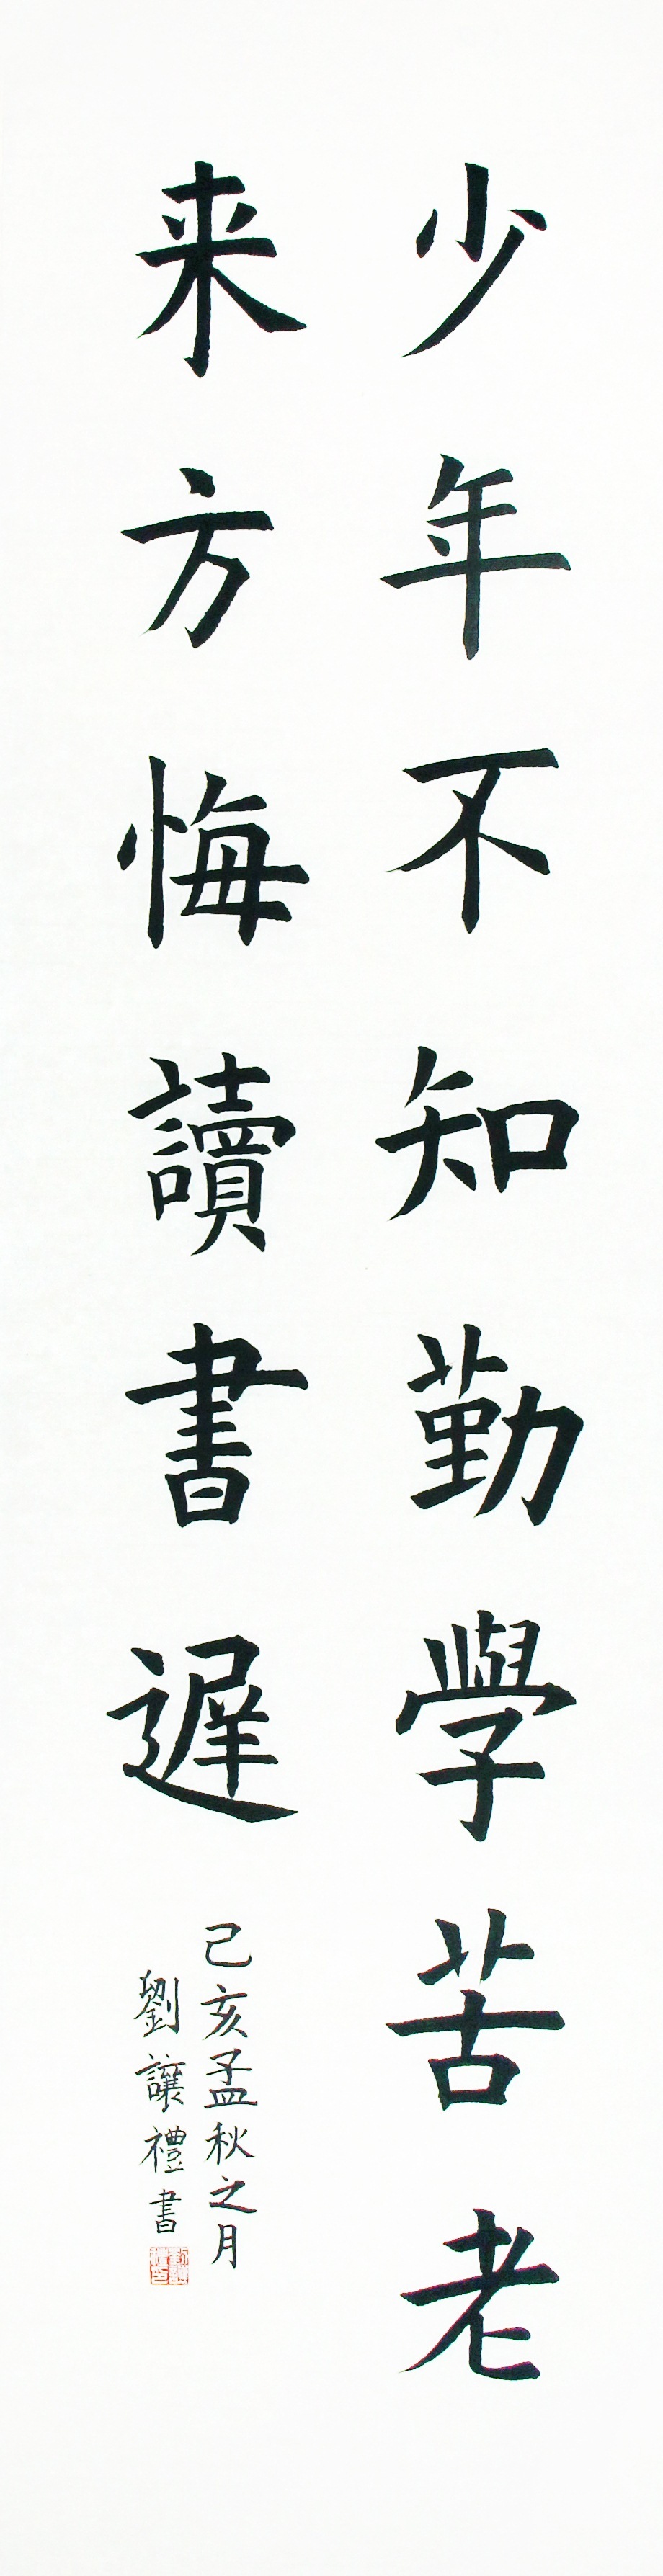 少年不知勤學苦老
来方悔讀書遲
己亥孟秋之月
劉讓禮書